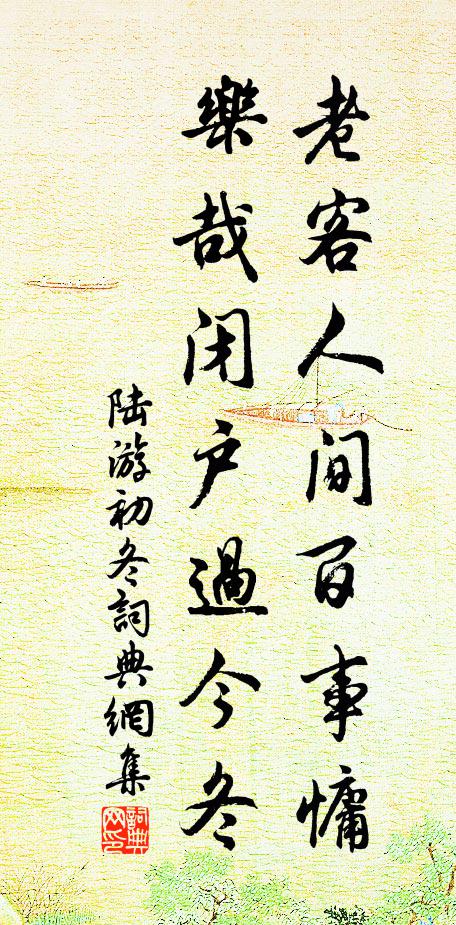 老客人间百事慵
樂哉闭户過今冬
陆游初冬詞典網集
詞典網印